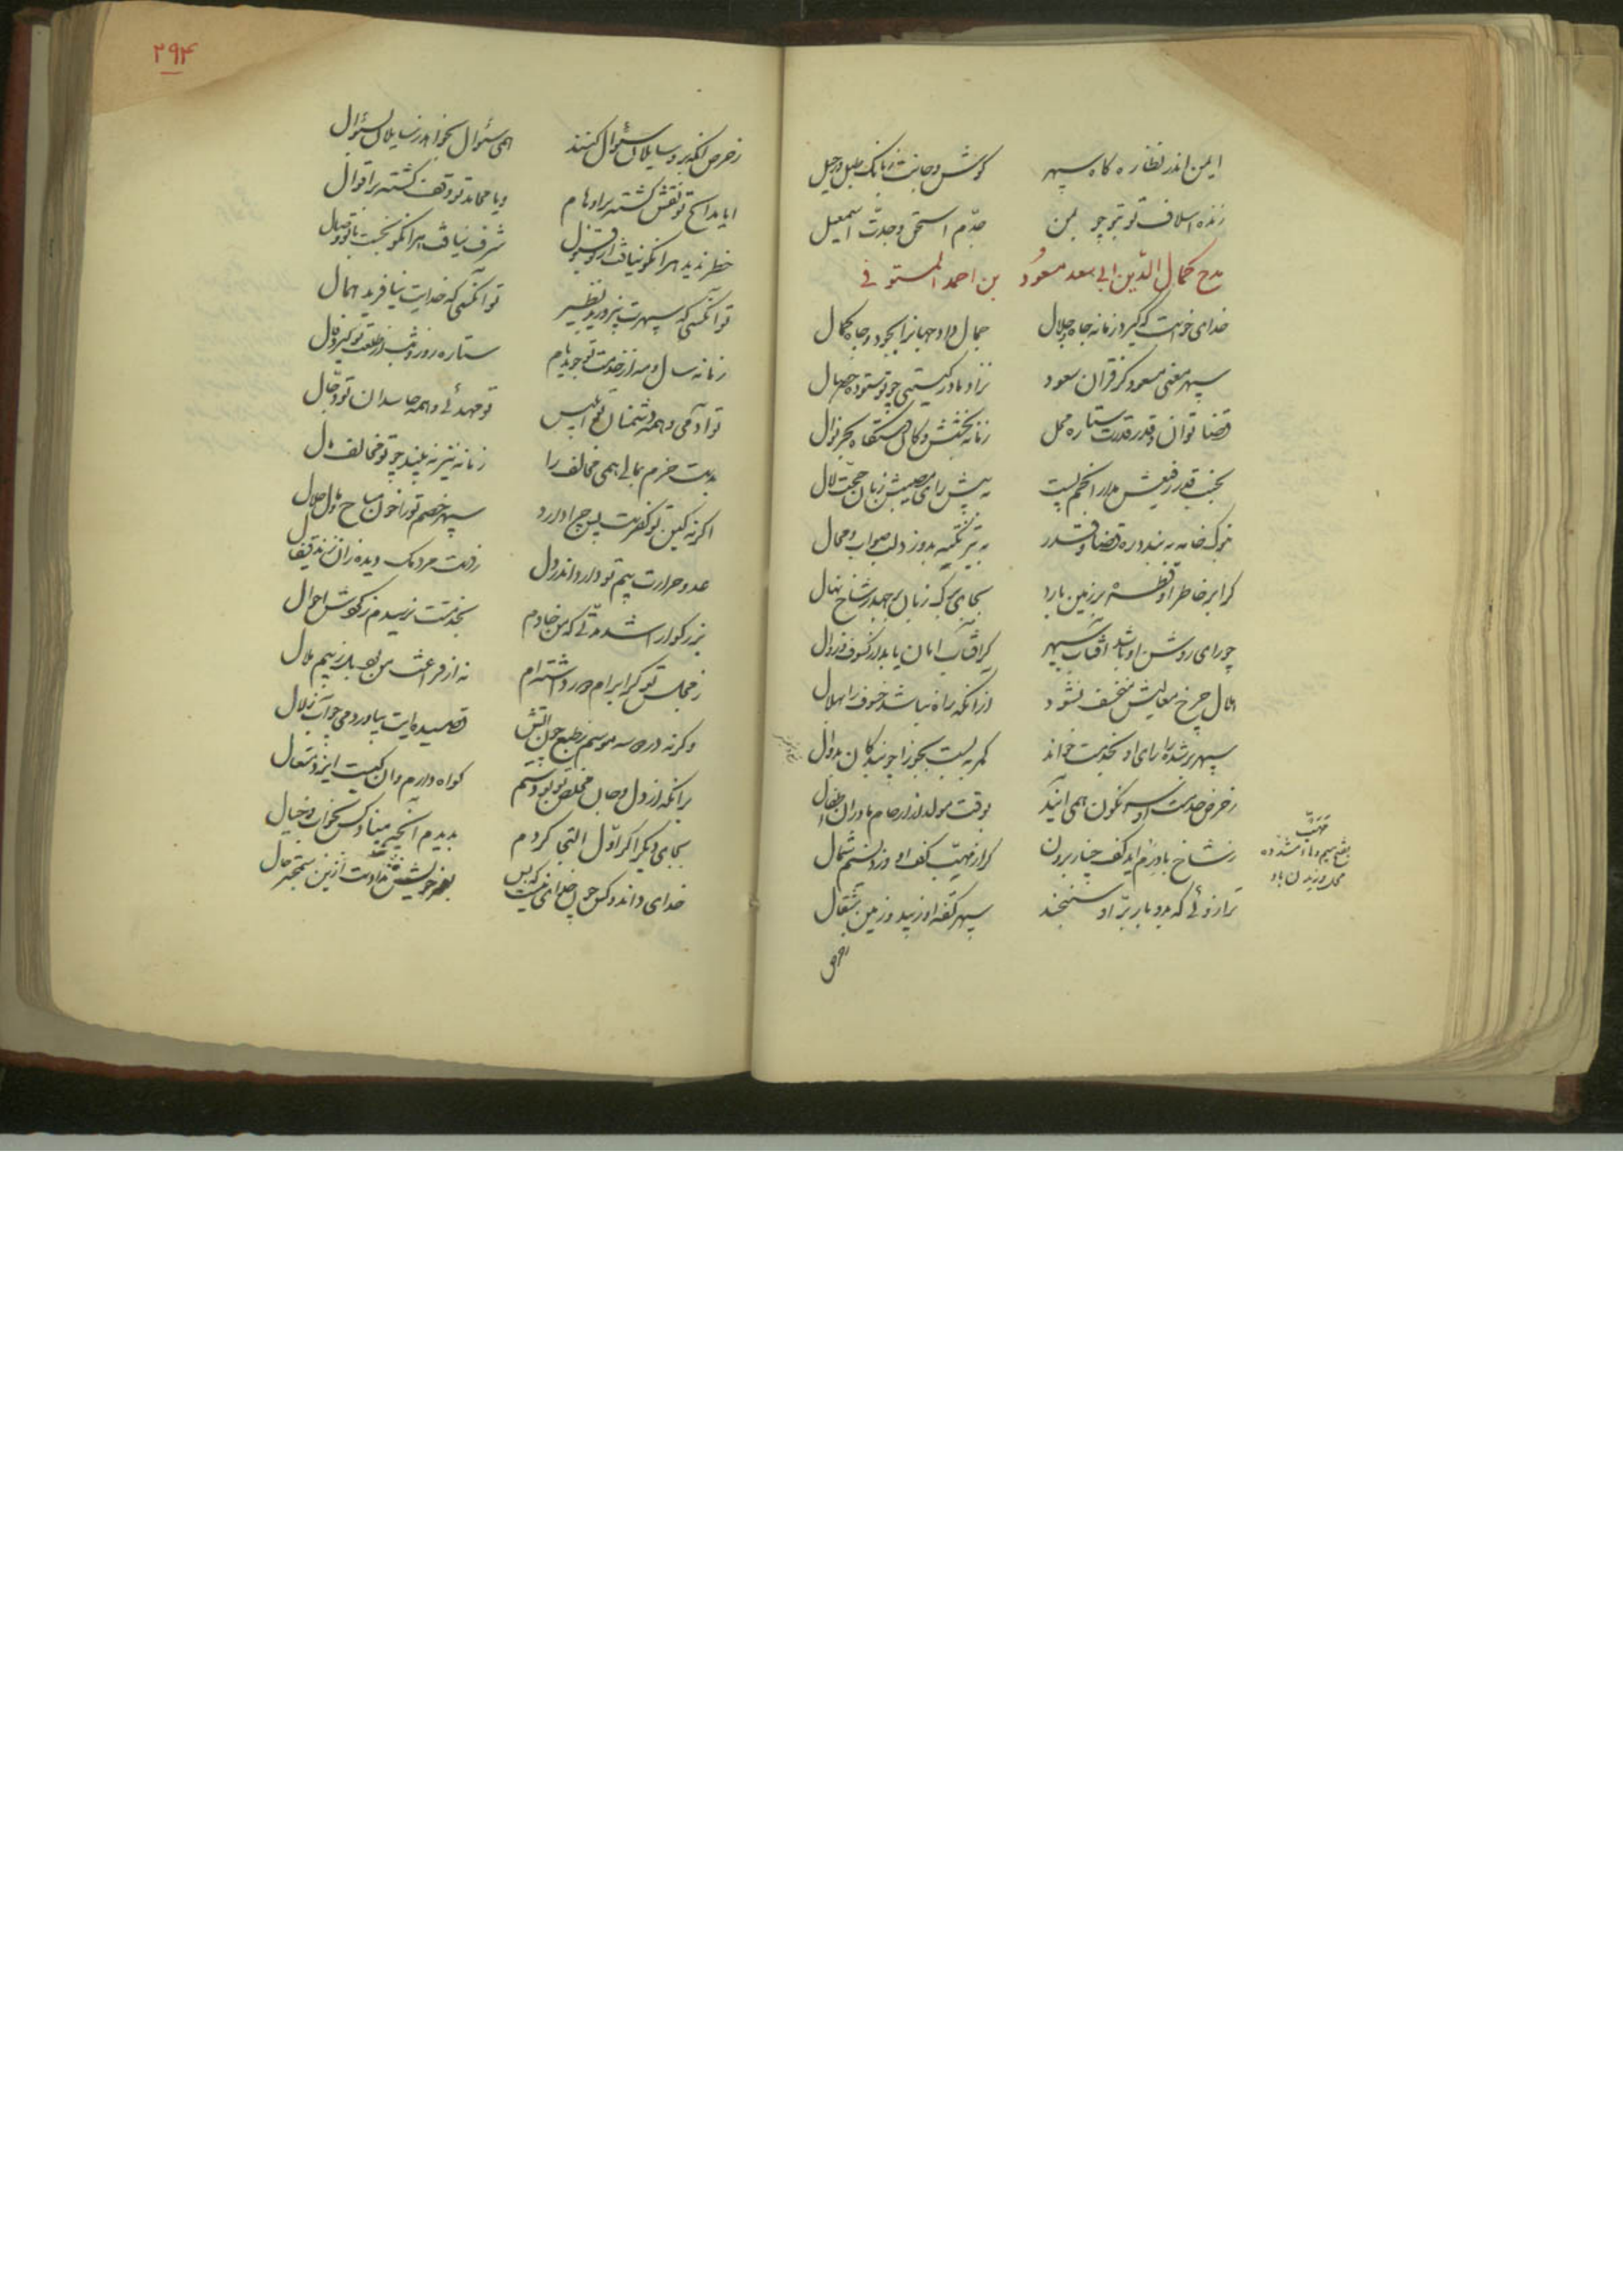 ایمن اندر نظاره کاه سپهر کوش و جانت ز بانک طبل رحیل
زنده اسلاف تو بتو چو بمن جدّم اسحق و جدّت اسمعیل
مدح کمال الدّین ابی سعد مسعُود بن احمد المستوفی
خدای خواست که کیرد زمانه جاه و جلال جمال داد جهانرا بجود و جاه کمال
سپهر معنی مسعود کز قران سعود نزاد مادر کیتی چو تو ستوده خصال
قضا توان و قدر قدرت ستاره محل زمانه بخشش و کان دستکاه بحر نوال
بجنب قدر رفیعش مدار انجم پست به پیش رای مصیبش زبان حجّت لال
بنوک خامه ببندد ره قضا و قدر به تیر نکته بدوزد لب صواب و محال
کر ابر خاطر او قطره بر زمین بارد بجای برک زبان بر جهد ز شاخ نهال
چو رای روشن او باشد آفتاب سپهر کر آفتاب امان یابد از کسوف و زوال
هلال چرخ معالیش منخسف نشود از انکه راه نباشد خسوف را بهلال
سپهر بر شده را رای او بخدمت خواند کمر ببست بجوزا چو بندکان بدوال
ز حرص خدمت او سرنکون همی آیند بوقت مولد از ارحام مادران اطفال
ز شاخ بادرم آید کف چنار برون کر از مهبّ کف او وزد نسیم شمال
ترازوئی که بدو بار برّ او سنجند سپهر کفه او زیبد و زمین مثقال
مهبّ
بفتح میم و هاء مشدده
محل وزیدن باد
زحرص
۲۹۴
ز حرص انکه برو سایلان سئوال کنند همی سئوال بخواهد ز سایلان بسئوال
ایا مدایح تو نقش کشته بر اوهام و یا محامد تو وقف کشته بر اقوال
خطر ندید هر انکو نیافت از تو قبول شرف نیافت هر انکو نجست با تو وصال
تو آنکسی که سپهرت نپرورید نظیر تو آنکسی که خدایت نیافرید همال
زمانه سال و مه از خدمت تو جوید نام ستاره روز و شب از طلعت تو کیرد فال
تو آدمی و همه دشمنان تو ابلیس تو مهدئی و همه حاسدان تو دجّال
بدست خرم بمالی همی مخالف را زمانه نیز نه بیند چو تو مخالف مال
اکر نه کین تو کفرست پس چرا دارد سپهر خصم تو را خون مباح و مال حلال
عدو حرارت بیم تو دارد اندر دل
بزرکوارا شد مدّتی که من خادم بخدمتت نرسیدم ز کوشش احوال
ز مجلس تو کر ابرام دور داشته‌ام نه از فراغت من بود بل ز بیم ملال
و کرنه در دو سه موسم ز طبع چون آتش قصیده‌ایت بیاوردمی چو آب زلال
بر انکه از دل و جان مخلص تو بودستم کواه دارم و آن کیست ایزد متعال
بجای دیکر اکر اوّل التجا کردم بدیدم آنچه مبیناد کس بخواب و خیال
خدای داند و کس چون خدای نیست که بس